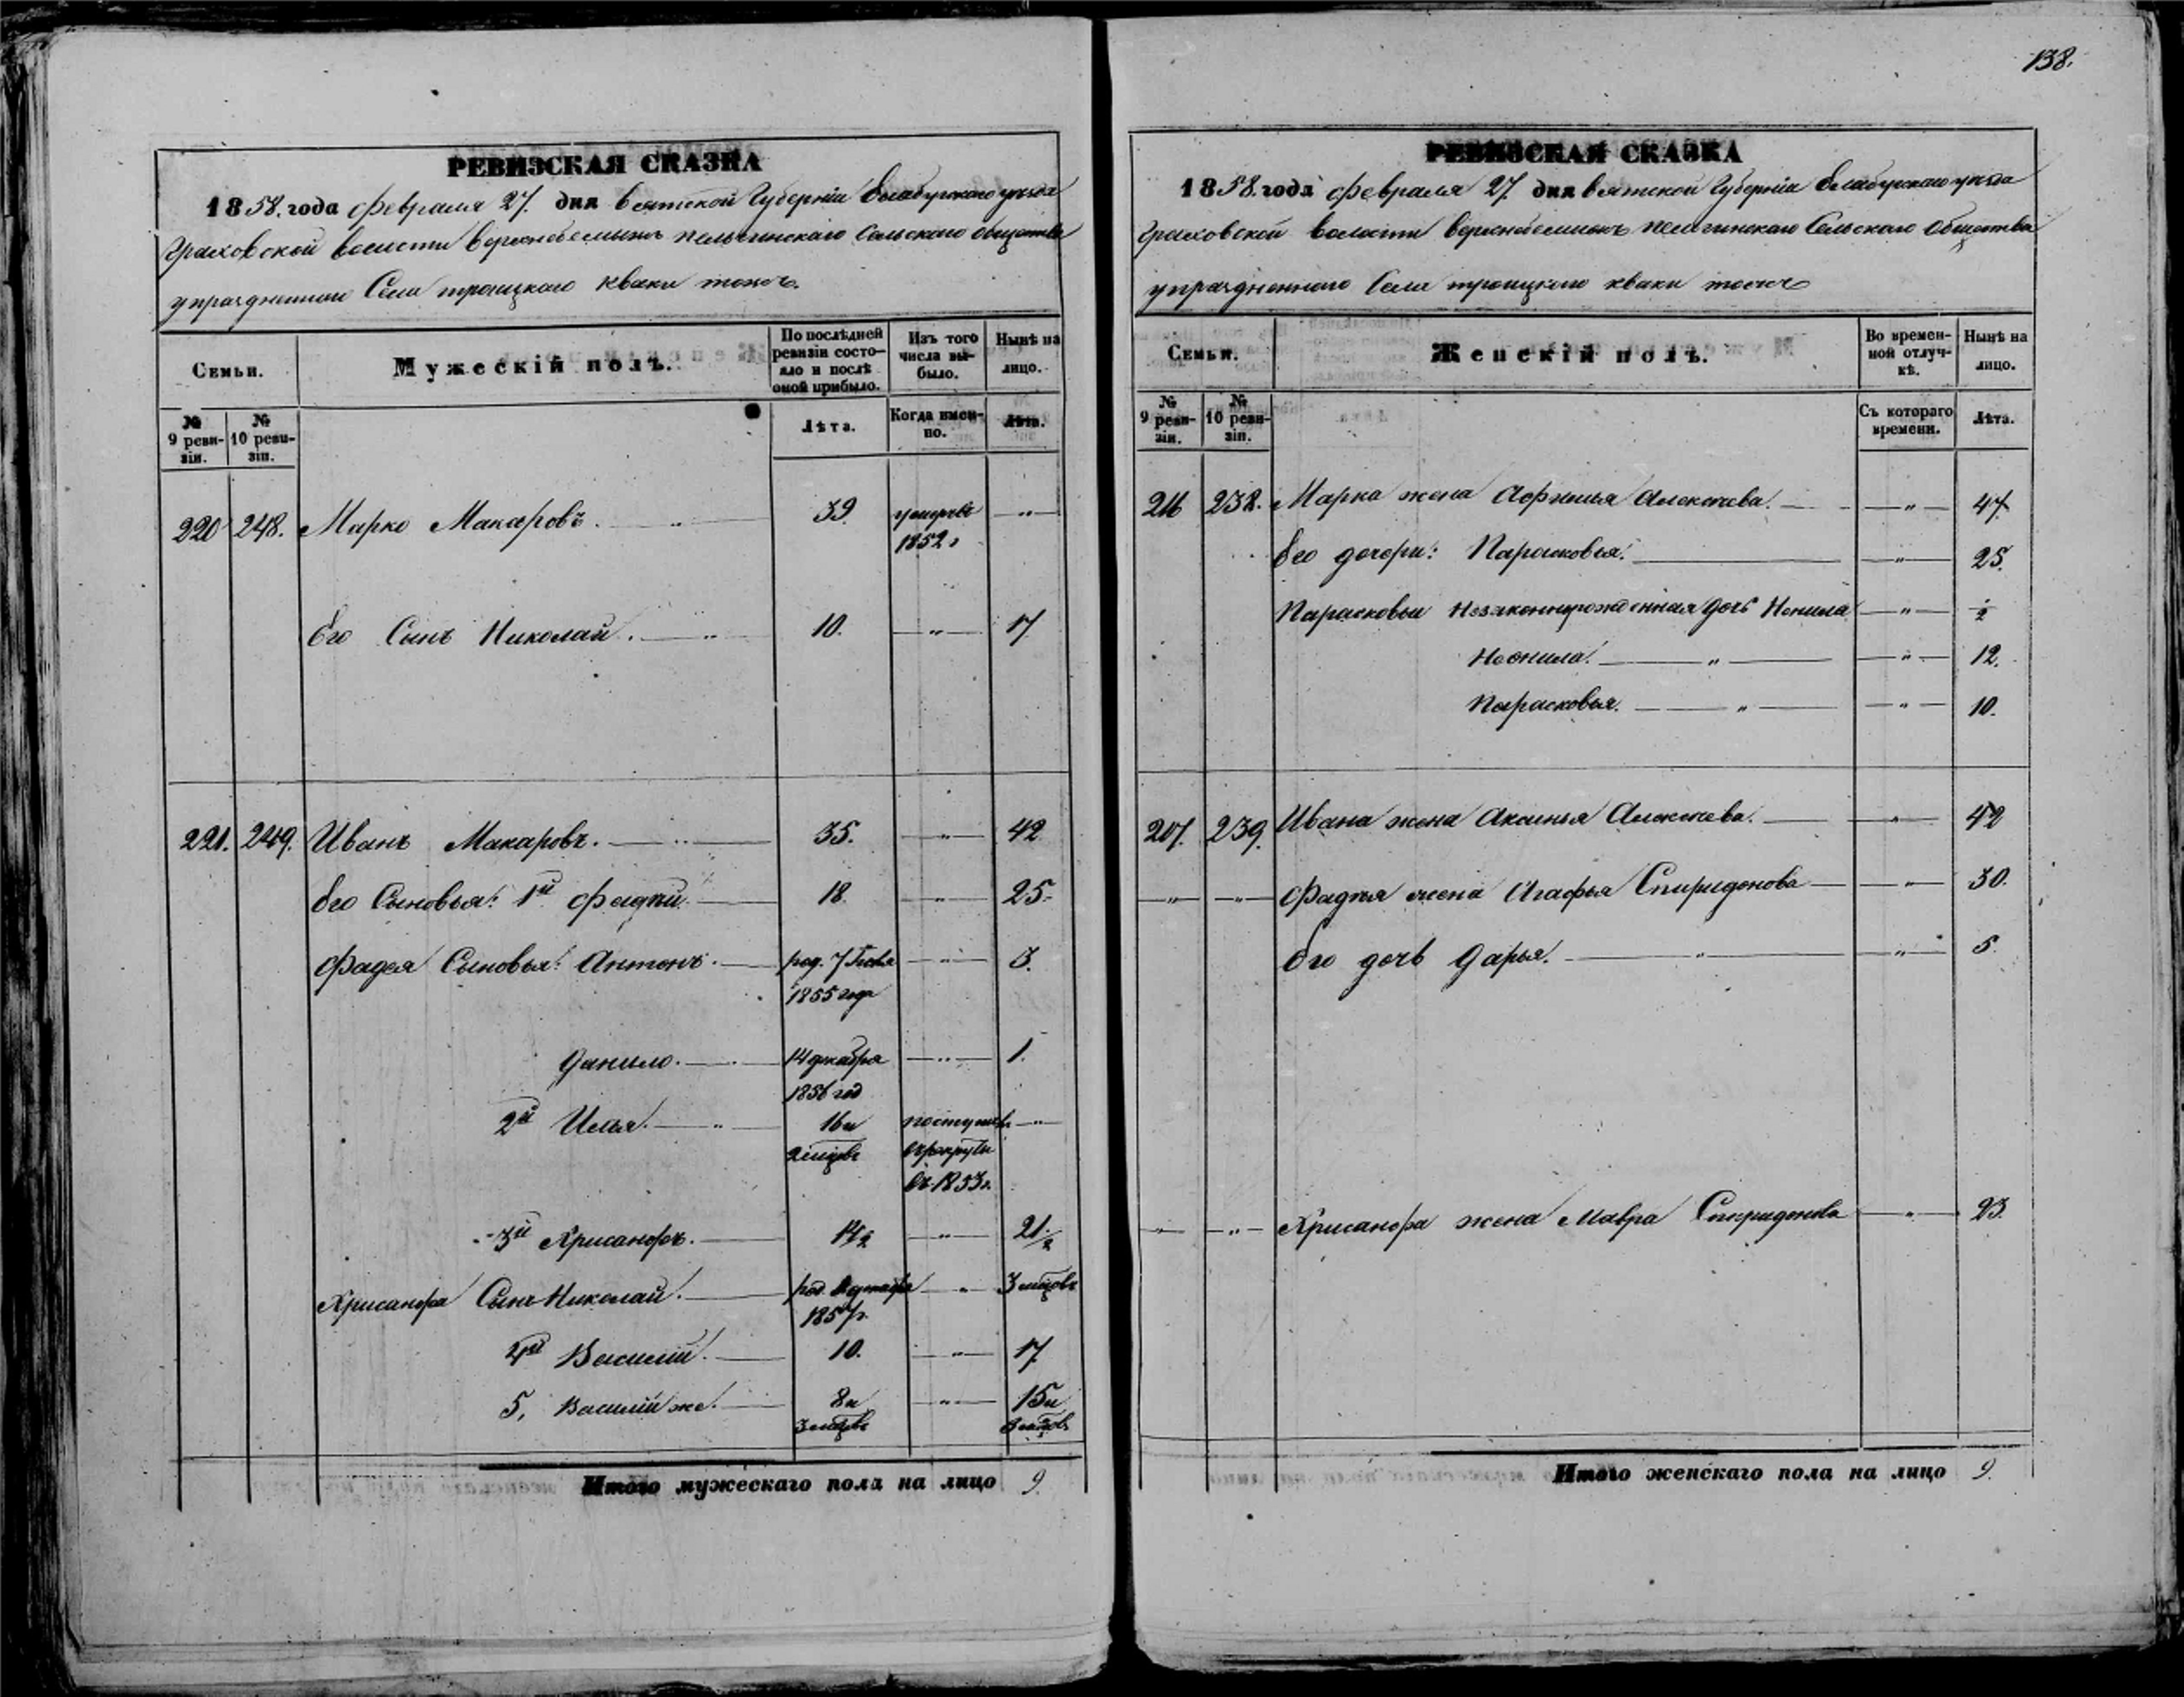 138.
РЕВИЗСКАЯ СКАЗКА
1858. года февраля 27. дня Вятской Губерніи Елабужскаго уезда
Граховской волости
упраздненного Села троицкаго кваки тожъ.
Семьи.
Мужескій полъ.
По послѣдней ревизіи состояло и послѣ оной прибыло.
Изъ того числа выбыло.
Нынѣ на лицо.
№ 9 ревизіи.
№ 10 ревизіи.
Лѣта.
Когда именно.
Лѣта.
220 248. Марко Макаровъ. " 39 умерѣ 1852 г "
Его Сынъ Николай. " 10. " 17
221. 249. Иванъ Макаровъ. " 35. " 42
Его Сыновья: 1й Фадѣй. 18. " 25.
Фадея Сыновья: Антонъ. род. 7 1855 года " 3.
Данило. 14 декабря 1856 год " 1.
2й Илья. " 16 и мѣсцовъ поступилъ врекруты въ 1853 г. "
3й Хрисанфъ. 14 1/2 " 21 1/2
Хрисанфа Сынъ Николай. род. декабря 1857 г. " 3 мѣсцовъ
4й Василій. 10. " 17
5, Василій же. 8 и 3 мѣсцовъ " 15 и мѣсцовъ
Итого мужескаго пола на лицо 9.
РЕВИЗСКАЯ СКАЗКА
1858. года февраля 27. дня Вятской Губерніи Елабужскаго уезда
Граховской волости
упраздненного Села троицкаго кваки тожъ
Семьи.
Женскій полъ.
Во временной отлучкѣ.
Нынѣ на лицо.
№ 9 ревизіи.
№ 10 ревизіи.
Съ котораго времени.
Лѣта.
238. Марка жена Афимья Алексѣева. " 47
Его дочери: Парасковья. " 25.
Парасковьи незаконнорожденная дочь Ненила " 1/2
Неонила. " " 12.
Парасковья. " " 10.
207. 239. Ивана жена Аксинья Алексѣева. " 42
" " Фадѣя жена Агафья Спиридонова " 30.
Его дочь Дарья. " " 5.
" " Хрисанфа жена Мавра Спиридонова " 23.
Итого женскаго пола на лицо 9.